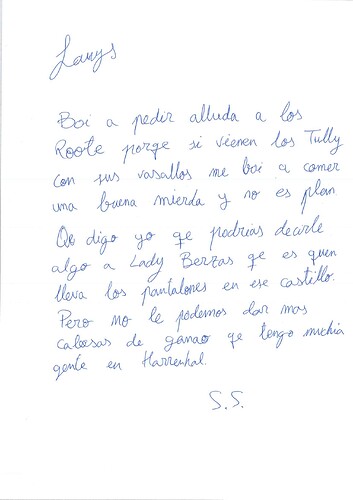 Larys
Boi a pedir alluda a los
Roote porqe si vienen los Tully
con sus vasallos me boi a comer
una buena mierda y no es plan
Qe digo yo qe podrias decirle
algo a Lady Berzas qe es quen
lleva los pantalones en ese castillo.
Pero no le podemos dar mas
cabesas de ganao qe tengo muchia
gente en Harrenhal.
S.S.